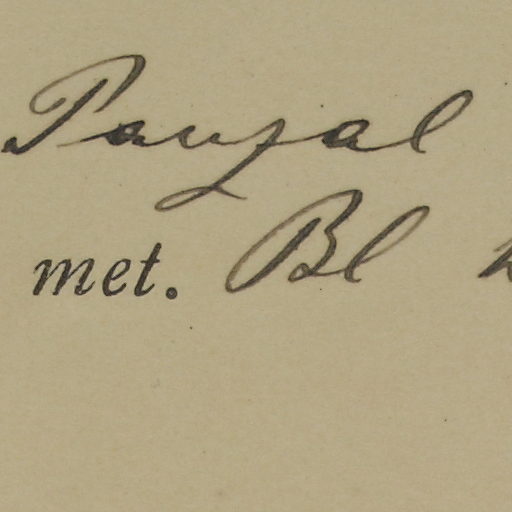 Panzal
met. Bl